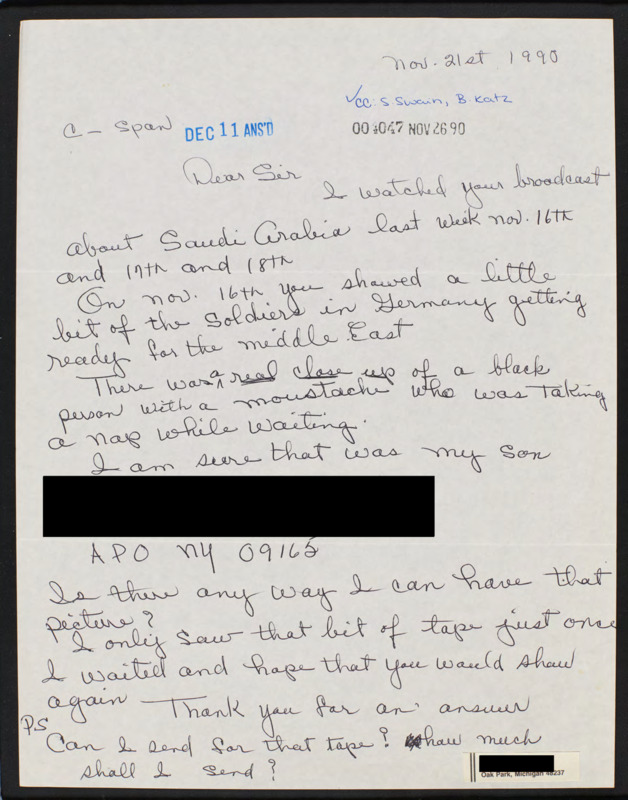 Nov. 21st 1990
✓cc: S. Swain, B. Katz
C - Span DEC 11 ANS'D 004047 NOV 26 90
Dear Sir
I watched your broadcast
about Saudi Arabia last week nov. 16th
and 17th and 18th
On nov. 16th you showed a little
bit of the Soldiers in Germany getting
ready for the middle East
There was a real close up of a black
person with a moustache who was Taking
a nap while waiting.
I am sure that was my son
APO NY 09165
Is there any way I can have that
picture?
I only saw that bit of tape just once
I waited and hope that you would show
again Thank you for an answer
PS
Can I send for that tape? how much
shall I send?
Oak Park, Michigan 48237